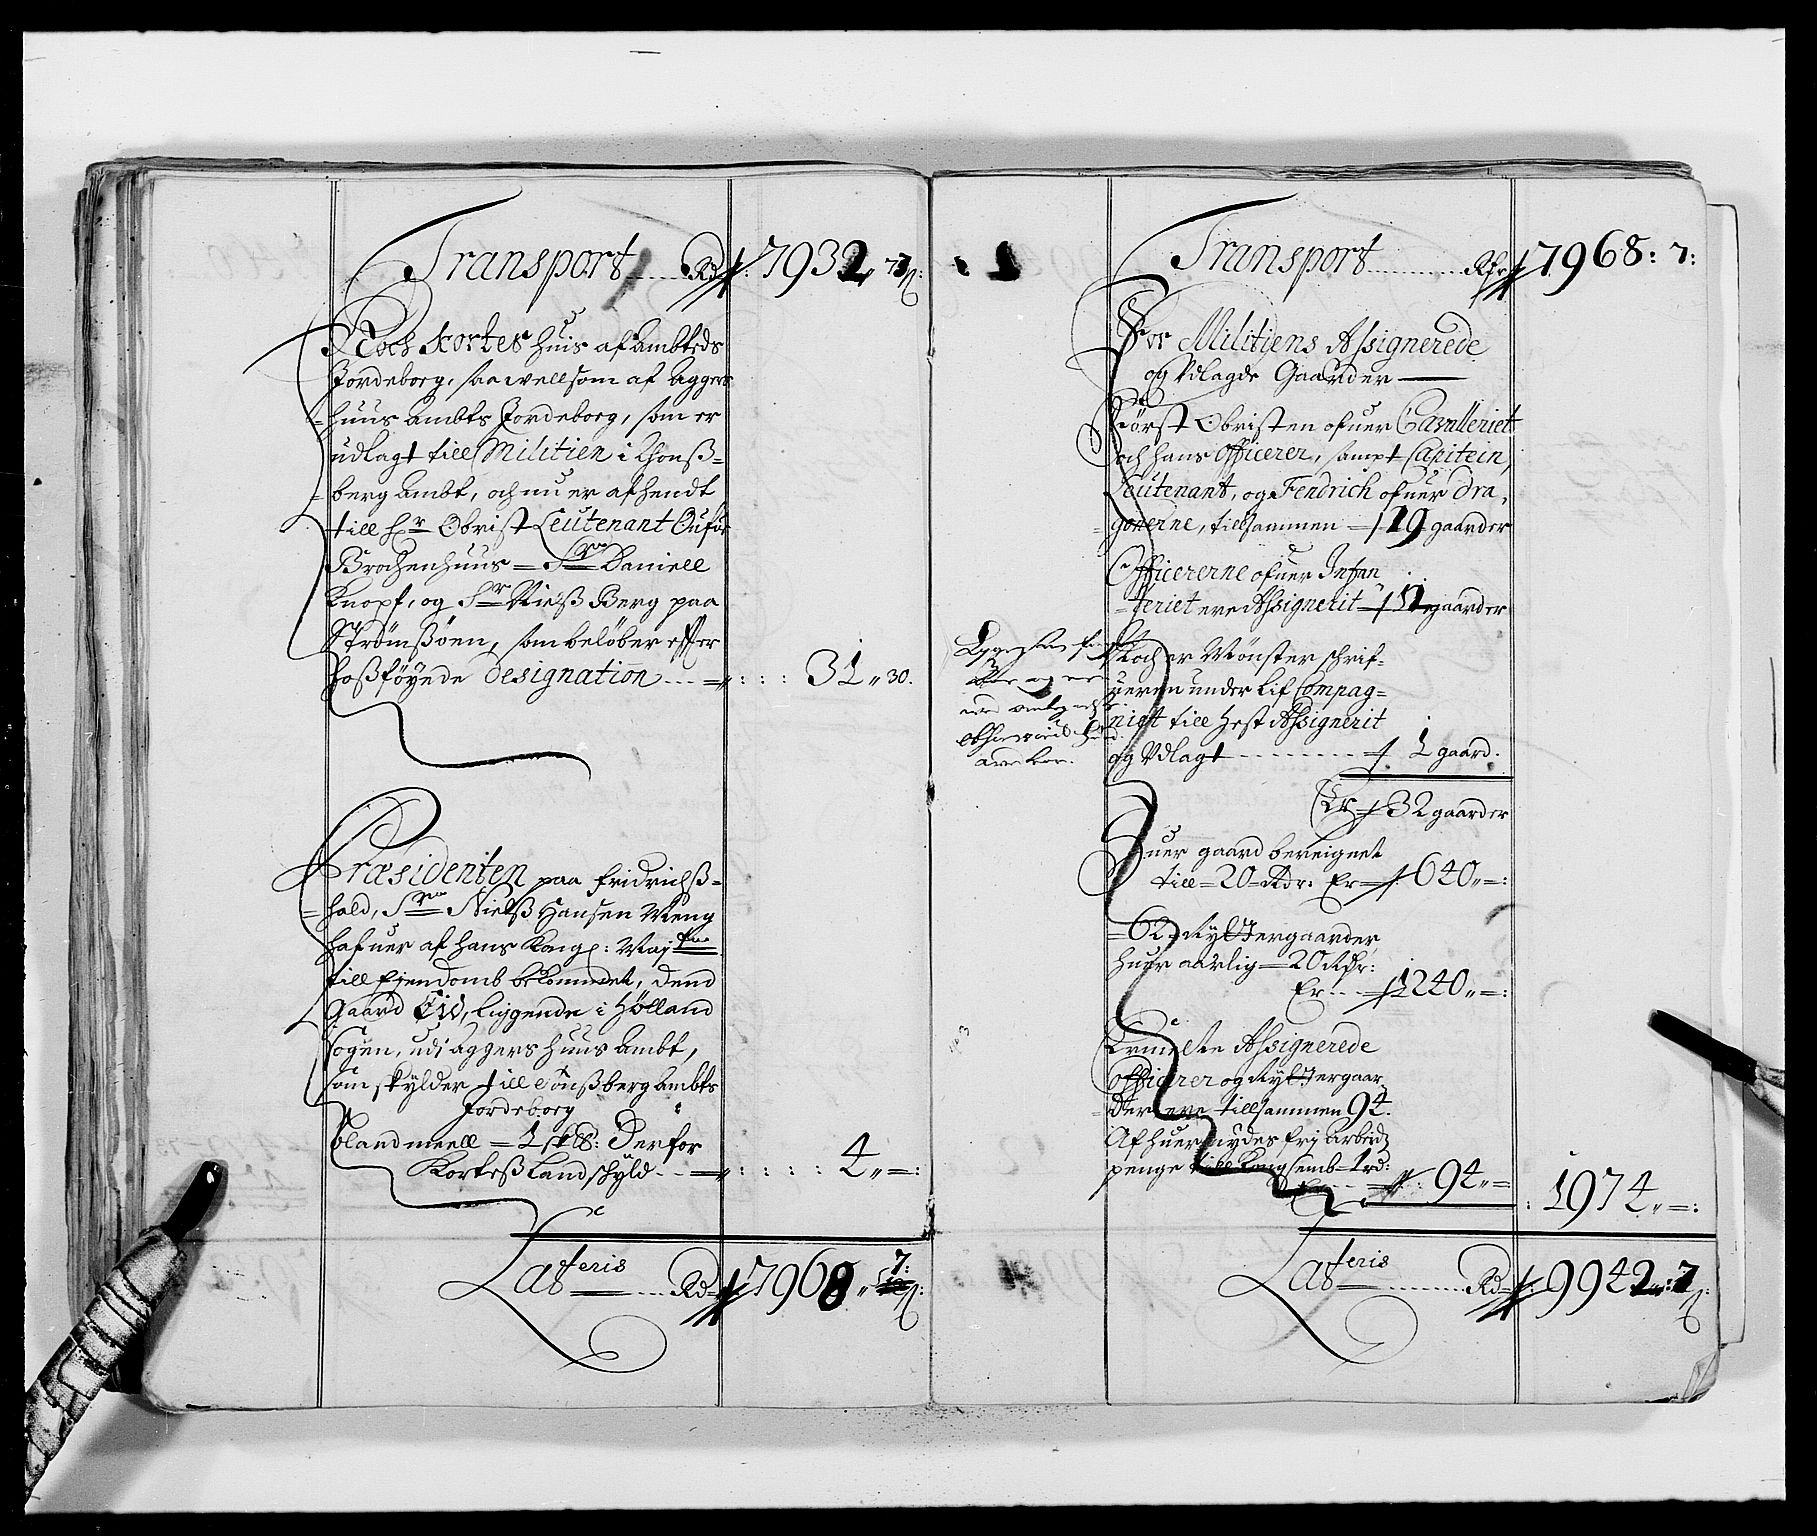 Transport ..... Rd 7932 „ 7
Noch Kortes huis af ambteds
Jordeborg, saawellsom af Aggers
huus Ambts Jordeborg, som er
udlagt till Militien i Thonß=
berg Ambt, och nu er afhendt
till Hr Obrist Leutenant
Brochenhuus = Sr Daniell
Knopf, og Sr Nielß Berg paa
Strømßøen, som beløber effter
hoßføyede Designation ... 31 „ 30.
Præsidenten paa Fridrichß=
hald, Sr Nielß Hansen Meng
hafuer af hans Kongl: Maj
till Ejendomb bekommet, dend
Gaard Eid, liggende i Holland
Sogen, udi Aggers huus Ambt,
som skylder till Tønßberg Ambts
Jordeborg
blandmeell = 1 skll: Derfor
Korteß Landskyld ... 4 „ =:
Lateris ..... Rd 7968 „ 7:
Transport ........ Rdr 7968: 7:
For Militiens Assignerede
og Udlagde Gaarder
Først Obristen ofuer Cavalleriet
och hans Officerer, sampt Capitein,
Leutenant, og Fendrich ofuer Dra,
gonerne, tillsammen = 19 gaarder
Officererne ofuer Infan
teriet ere Assignerit gaarder
Noch er Mønster schrif=
ueren under Lif Compag=
niet till Hest Assignerit
og Udlagt ........ 1 gaard.
Er = 32 gaarder
Huer gaard bereignet
till = 20 = Rdr. Er = 640 „ =:
= 62 = Rytttergaarder
huer aarlig = 20 Rdr:
Er ... 1240 „ =:
Ermelte Assignerede
Officerer og Ryttergaar
der ere tillsammen 94.
Af huer nydes frj arbeidz
penge till Kongsemb = 1rd:
Er ... 94 „ =
1974 „ =:
Lateris ........ Rd 9942: 7